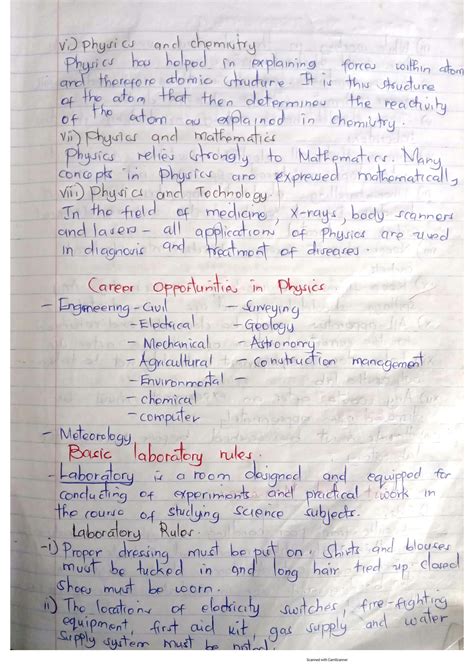 vi) Physics and chemistry
Physics has helped in explaining forces within atom
and therefore atomic structure. It is this structure
of the atom that then determines the reactivity
of the atom as explained in chemistry.
vii) Physics and mathematics
Physics relies strongly to Mathematics. Many
concepts in Physics are expressed mathematically
viii) Physics and Technology
In the field of medicine, X-rays, body scanners
and lasers - all applications of Physics are used
in diagnosis and treatment of diseases.
Career Opportunities in Physics
- Engineering - Civil - Surveying
- Electrical - Geology
- Mechanical - Astronomy
- Agricultural - Construction management
- Environmental -
- chemical
- computer
- Meteorology
Basic laboratory rules.
- Laboratory is a room designed and equipped for
conducting of experiments and practical work in
the course of studying science subjects.
Laboratory Rules.
- i) Proper dressing must be put on. Shirts and blouses
must be tucked in and long hair tied up closed
shoes must be worn.
ii) The locations of electricity switches, fire-fighting
equipment, first aid kit, gas supply and water
supply system must be noted
Scanned with CamScanner